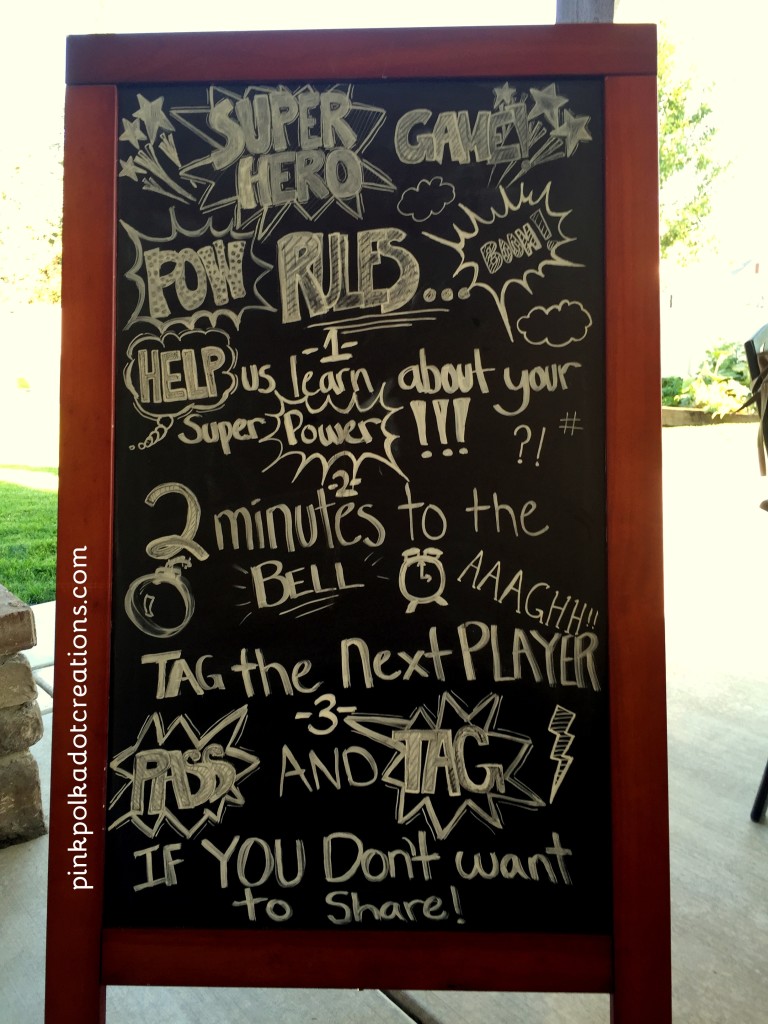 SUPER HERO GAME!
POW RULES... BOOM!
-1-
HELP us learn about your
Super Power !!!
?! #
-2-
2 minutes to the
BELL AAAGHH!!
TAG the next PLAYER
-3-
PASS AND TAG
IF YOU Don't want
to Share!
pinkpolkadotcreations.com